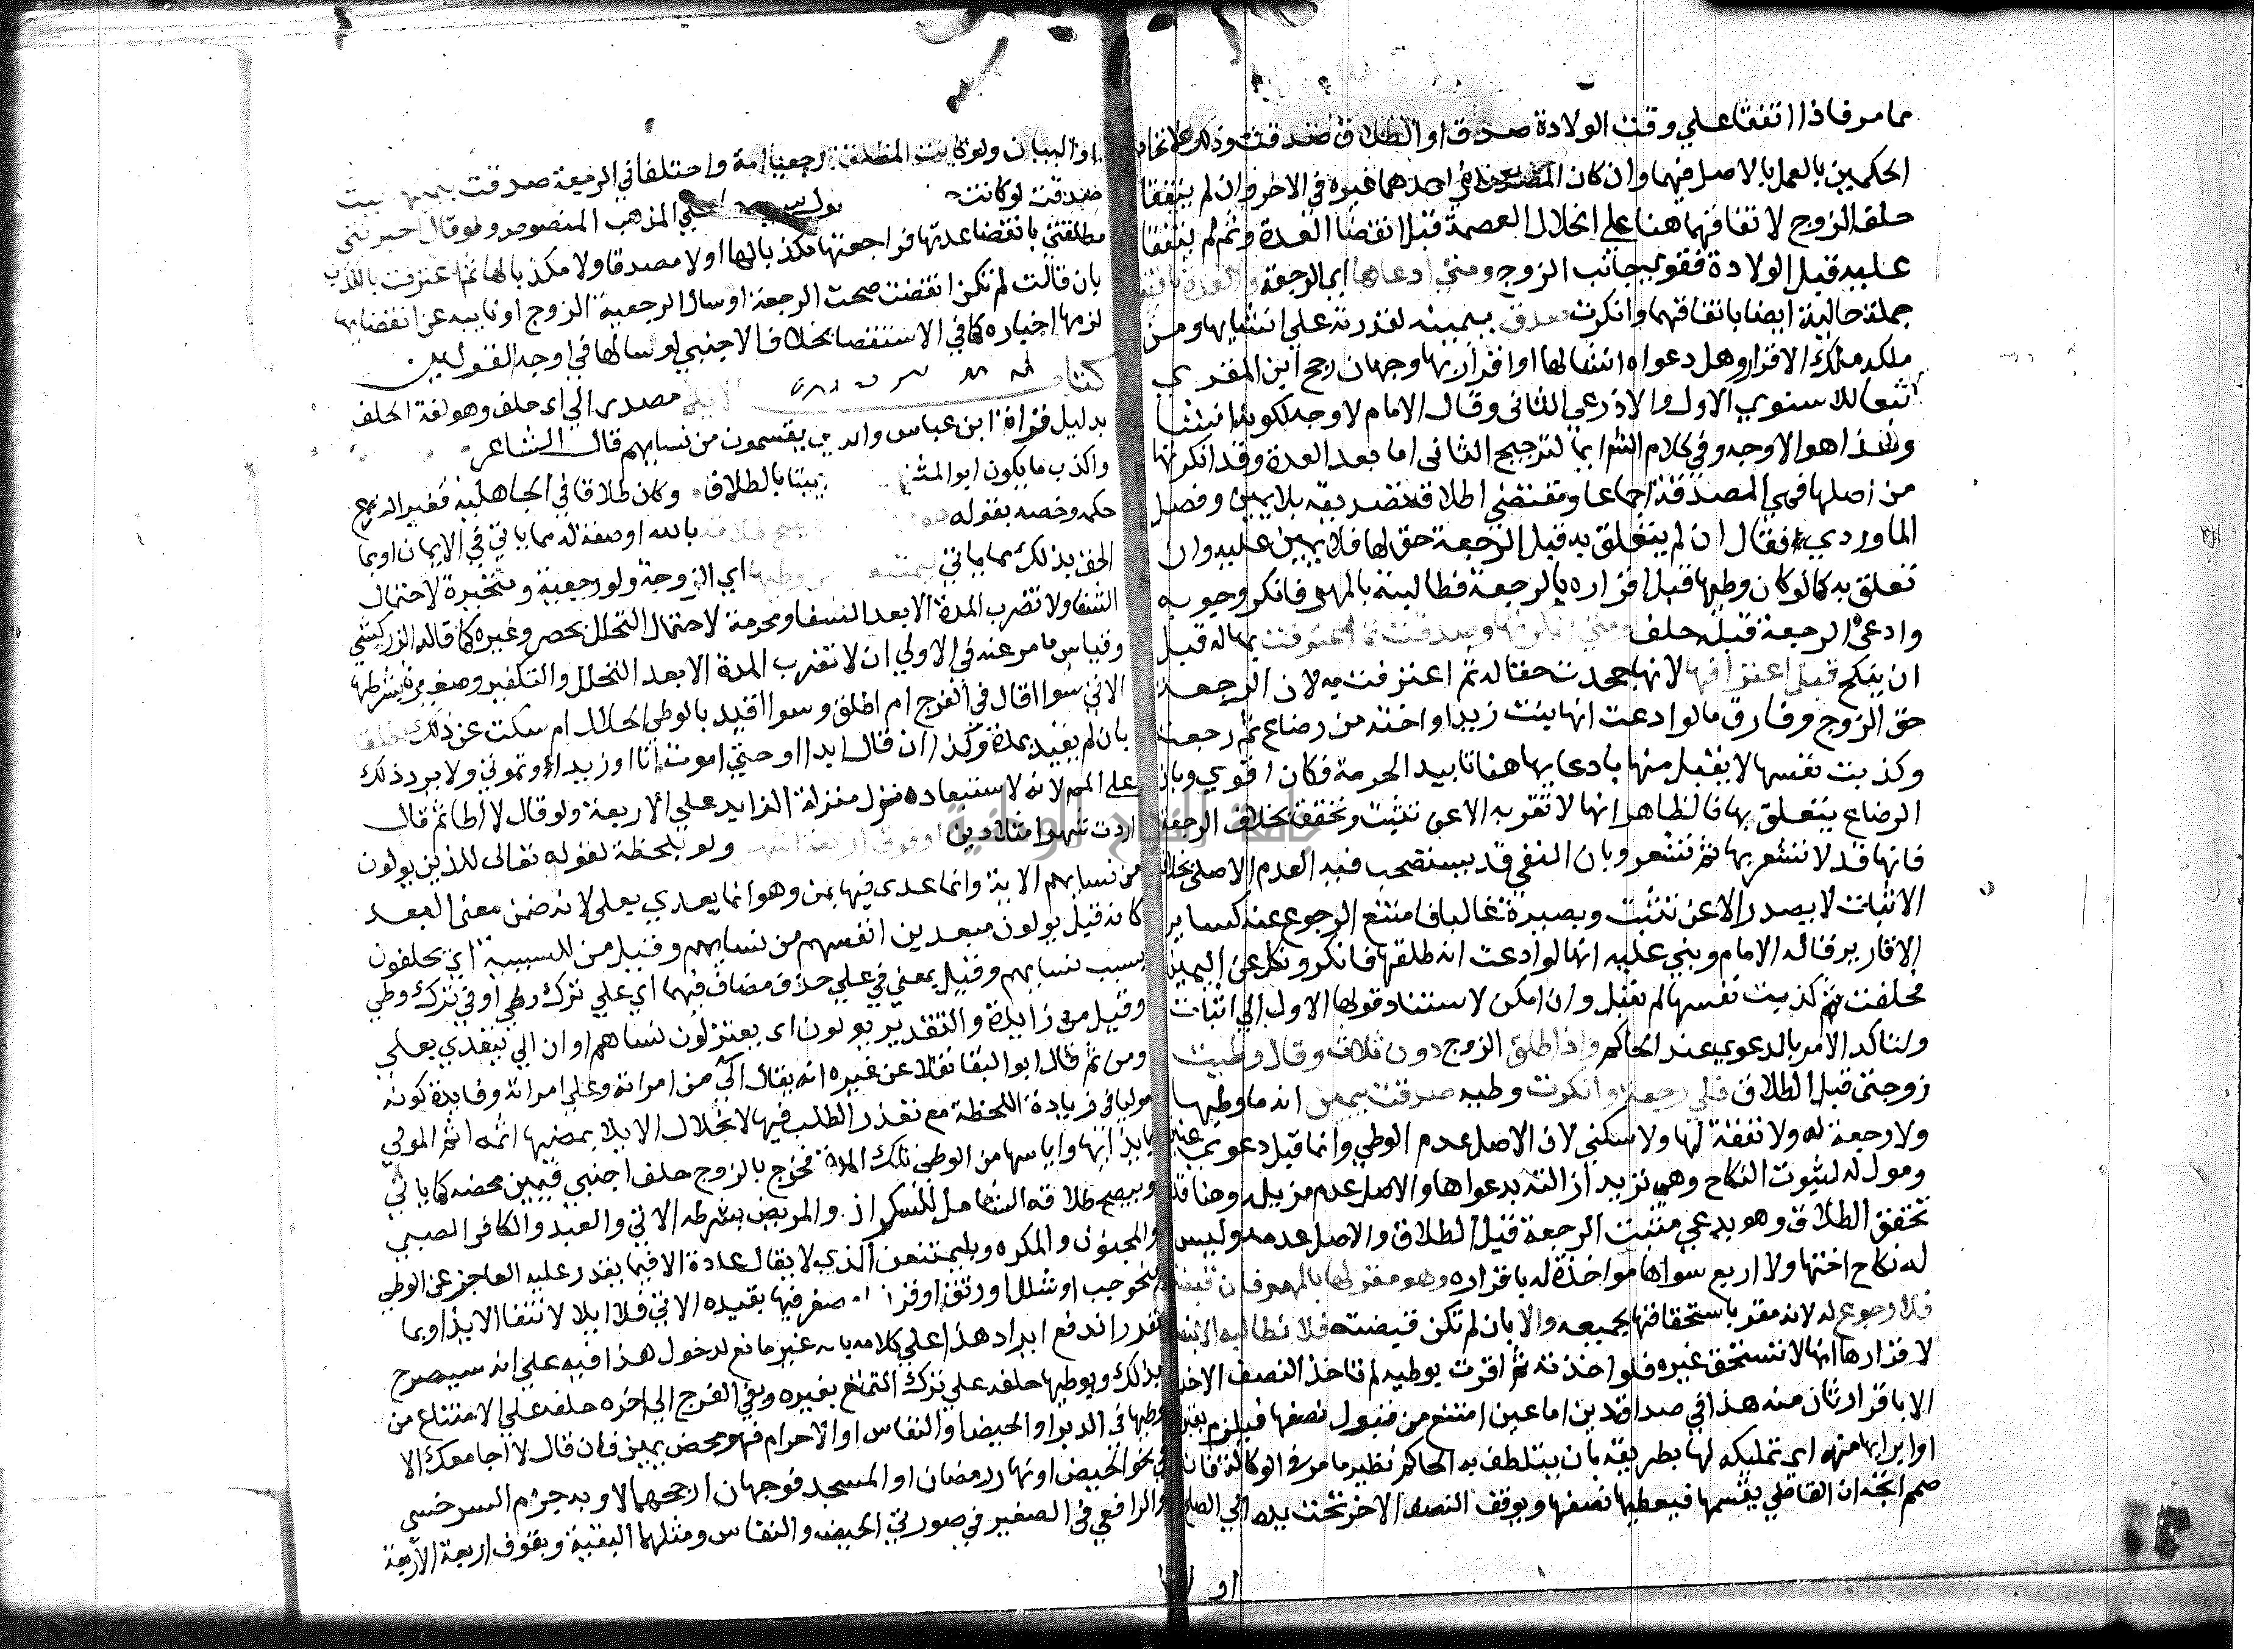 مما مر فاذا اتفقا علي وقت الولادة صدق او الطلاق صدقت وذلك
الحكمين بالعمل بالاصل فيهما وان كان المصدق في احدهما غيره في الاخر وان لم يتفقا
حلف الزوج لاتفاقهما هنا علي انحلال العصمة قبل انقضا العدة وثم لم يتفقا
عليه قبل الولادة فقوي جانب الزوج ومتي ادعاها اي الرجعة والعدة
جملة حالية ايضا باتفاقهما وانكرت صدق بيمينه لقدرته علي انشايها ومن
ملك ملك الاقرار وهل دعواه انشا لها او اقرار بها وجهان رجح ابن المقري
تبعا للاسنوي الاول والاذرعي الثاني وقال الامام لا وجه لكونه انشا
وهذا هو الاوجه وفي كلام لترجيح الثاني اما بعد العدة وقد انكرتها
من اصلها فهي المصدقة اجماعا ومقتضي اطلاقه تصديقه بلا يمين وفصل
الماوردي فقال ان لم يتعلق به قبل الرجعة حق لها فلا يمين عليه وان
تعلق به كما لو كان وطيها قبل اقراره بالرجعة فطالبته بالمهر فانكر وجوبه
وادعي الرجعة قبله حلف ومتي انكرتها وصدقت ثم اعترفت بها له قبل
ان ينكح قبل اعترافها لانها جحدت حقا له ثم اعترفت به لان الرجعة
حق الزوج وفارق ما لو ادعت انها بنت زيد او اخته من رضاع ثم رجعت
وكذبت نفسها لا يقبل منها بادعايها هنا تابيد الحرمة فكان اقوي وبان
الرضاع يتعلق بها فالظاهر انها لا تقر به الا عن تثبت وتحقق بخلاف الرجعة
فانها قد لا تشعر بها ثم تشعر وبان النفي قد يستصحب فيه العدم الاصلي بخلاف
الاثبات لا يصدر الا عن تثبت وبصيرة غالبا فامتنع الرجوع عنه كساير
الاقارير قاله الامام وبني عليه انها لو ادعت انه طلقها فانكر ونكل عن اليمين
فحلفت ثم كذبت نفسها لم يقبل وان امكن لاستناد قولها الاول الي اثبات
ولتاكد الامر بالدعوي عند الحاكم واذا طلق الزوج دون ثلاث وقال وطيت
زوجتي قبل الطلاق فلي رجعة وانكرت وطيه صدقت بيمين انه ما وطيها
ولا رجعة له ولا نفقة لها ولا سكني لان الاصل عدم الوطي وانما قبل دعوي عنين
ومول له لثبوت النكاح وهي تريد ازالته بدعواها والاصل عدم مزيله وهنا قد
تحقق الطلاق وهو يدعي مثبت الرجعة قبل الطلاق والاصل عدمه وليس
له نكاح اختها ولا اربع سواها مواخذة له باقراره وهو مقر لها بالمهر فان قبضته
فلا رجوع له لانه مقر باستحقاقها لجميعه والا بان لم تكن قبضته فلا تطالبه الا بنصف
لاقرارها انها لا تستحق غيره فلو اخذته ثم اقرت بوطيه لم تاخذ النصف الاخر
الا باقرار ثان منه هذا في صداق دين اما عين امتنع من قبول نصفها فيلزم بقبول
او ابرايها منه اي تمليكه لها بطريقه بان يتلطف به الحاكم نظير ما مر في الوكالة فان
صمم اتجه ان القاضي يقسمها فيعطيها نصفها ويوقف النصف الاخر تحت يده الي الصلح
او
او البيان ولو كانت المطلقة رجعيا امة واختلفا في الرجعة صدقت
صدقت لو كانت علي المذهب المنصوص ولو قال اخبرتني
مطلقتي بانقضا عدتها فراجعتها مكذبا لها او لا مصدقا ولا مكذبا لها ثم اعترفت بالكذب
بان قالت لم تكن انقضت صحت الرجعة او سال الرجعية الزوج او نايبه عن انقضايها
لزمها اخباره كما في الاستقصا بخلاف الاجنبي لو سالها في اوجه القولين
كتاب الايلا مصدر الي اي حلف وهو لغة الحلف
بدليل قراة ابن عباس يقسمون من نسايهم قال الشاعر
واكذب ما يكون ابو المثني بالطلاق وكان طلاقا في الجاهلية فغير الشرع
حكمه وخصه بقوله بالله او صفة له مما ياتي في الايمان او بما
الحق بذلك مما ياتي ليمتنعن من وطيها اي الزوجة ولو رجعية ومتحيرة لاحتمال
الشفا ولا تضرب المدة الا بعد الشفا ومحرمة لاحتمال التحلل بحصر وغيره كما قاله الزركشي
وقياس ما مر عنه في الاولي ان لا تضرب المدة الا بعد التحلل والتكفير وصغيرة بشرطها
الاتي سوا اقال في الفرج ام اطلق وسوا اقيد بالوطي الحلال ام سكت عن ذلك مطلقا
بان لم يقيد بمدة وكذا ان قال ابدا او حتي اموت انا او زيد او تموتي ولا يرد ذلك
علي المص لانه لاستبعاده نزل منزلة الزايد علي الاربعة ولو قال لا اطا ثم قال
اردت شهرا مثلا دين او فوق اربعة اشهر ولو بلحظة لقوله تعالي للذين يولون
من نسايهم الاية وانما عدي فيها بمن وهو انما يعدي بعلي لانه ضمن معني البعد
كانه قيل يولون مبعدين انفسهم من نسايهم وقيل من للسببية اي يحلفون
بسبب نسايهم وقيل بمعني في علي حذف مضاف فيهما اي علي ترك وطي او في ترك وطي
وقيل من زايدة والتقدير يولون اي يعتزلون نساهم او ان الي يتعدي بعلي
ومن ثم قال ابو البقا نقلا عن غيره انه يقال الي من امراته وعلي امراته وفايدة كونه
موليا في زيادة اللحظة مع تعذر الطلب فيها لانحلال الايلا بمضيها اثمه اثم المولي
بايذايها واياسها من الوطي تلك المدة فخرج بالزوج حلف اجنبي فيمين محضه كما ياتي
وبيصح طلاقه الشامل للسكران والمريض بشرطه الاتي والعبد والكافر الصبي
والمجنون والمكره وبليمتنعن الذي لا يقال عادة الا فيما يقدر عليه العاجز عن الوطي
بنحو جب او شلل او رتق او قرن او صغر فيها بقيده الاتي فلا ايلا لانتفا الايذا وبما
تقرر اندفع ايراد هذا علي كلامه بانه غير مانع لدخول هذا فيه علي انه سيصرح
بذلك وبوطيها حلفه علي ترك التمتع بغيره وبفي الفرج الي اخره حلفه علي الامتناع من
وطيها في الدبر او الحيض او النفاس او الاحرام فهو محض يمين فان قال لا اجامعك الا
في نحو الحيض او نهار رمضان او المسجد فوجهان ارجحهما لا وبه جزم السرخسي
والرافعي في الصغير في صورتي الحيض والنفاس ومثلهما البقية وبفوق اربعة الاربعة